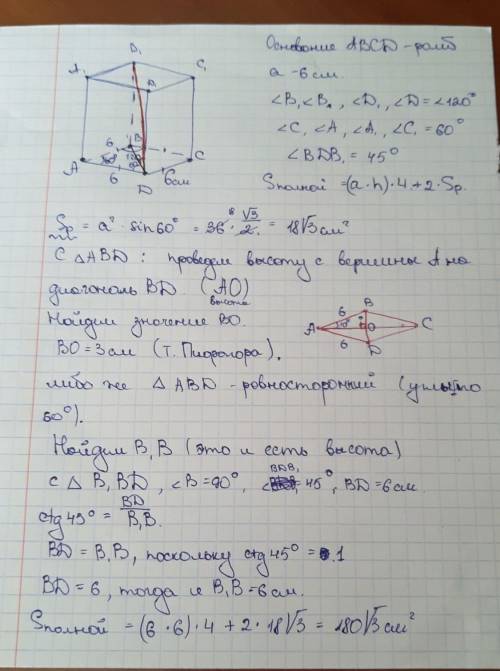 Основание ABCD - ромб
a - 6 см.
∠B, ∠B₁, ∠D₁, ∠D = ∠120°
∠C, ∠A, ∠A₁, ∠C₁ = 60°
∠BDB₁ = 45°
Sполной = (a·h)·4 + 2·Sр.
A₁
B₁
D₁
C₁
6
B
A
60°
6
D
6см
C
Sр = a²·sin60° = 36·√3/2 = 18√3 см²
С △ABD: проведем высоту с вершины A на
диагональ BD. (AO)
высота
Найдем значение BO.
BO = 3см (т. Пифагора).
либо же △ABD - ровносторонний (углы по
60°).
B
6
A
O
C
6
D
Найдем B₁B (это и есть высота)
С △ B₁BD, ∠B = 90°, ∠BDB₁ 45°, BD = 6 см.
ctg45° = BD/B₁B.
BD = B₁B, поскольку ctg45° = 1
BD = 6, тогда и B₁B = 6 см.
Sполной = (6·6)·4 + 2·18√3 = 180√3 см²